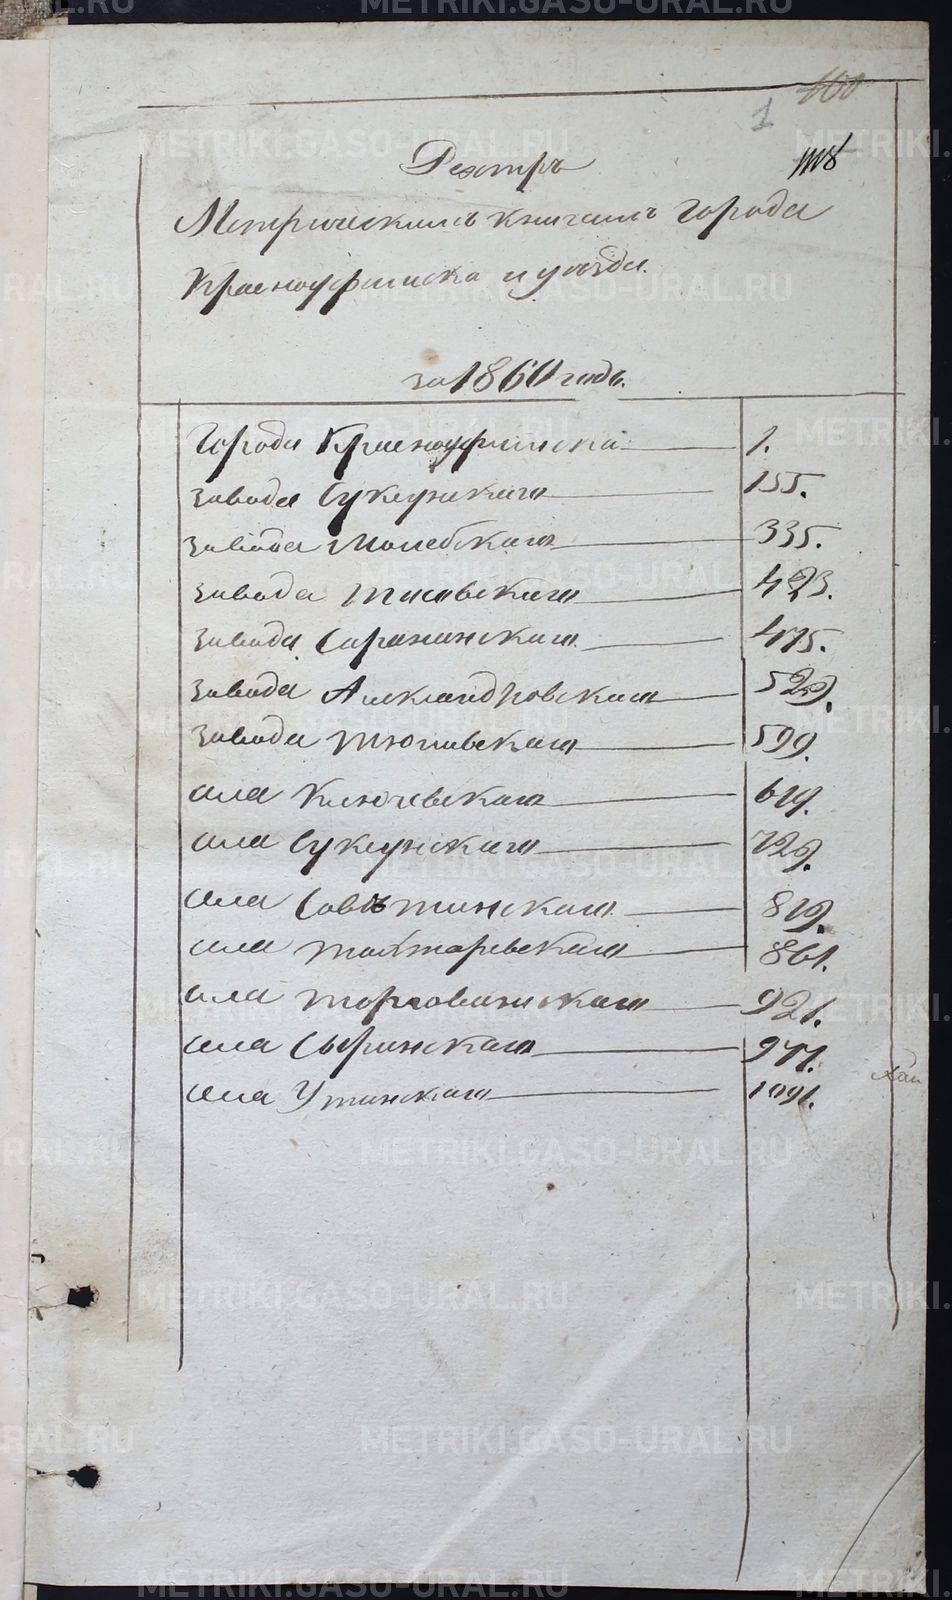 100
1
Реэстръ
Метрическимъ книгамъ города
Красноуфимска и уѣзда.
за 1860 годъ.
Города Красноуфимска 1.
завода Суксунскаго 155.
завода Молебскаго 335.
завода Тисовскаго 423.
завода Саранинскаго 475.
завода Александровскаго 529.
завода Тюшевскаго 599.
села Ключевскаго 619.
села Суксунскаго 729.
села Совѣтинскаго 819.
села Тохтаревскаго 861.
села Торговинскаго 921.
села Сыринскаго 977.
села Утинскаго 1091.
METRIKI.GASO-URAL.RU